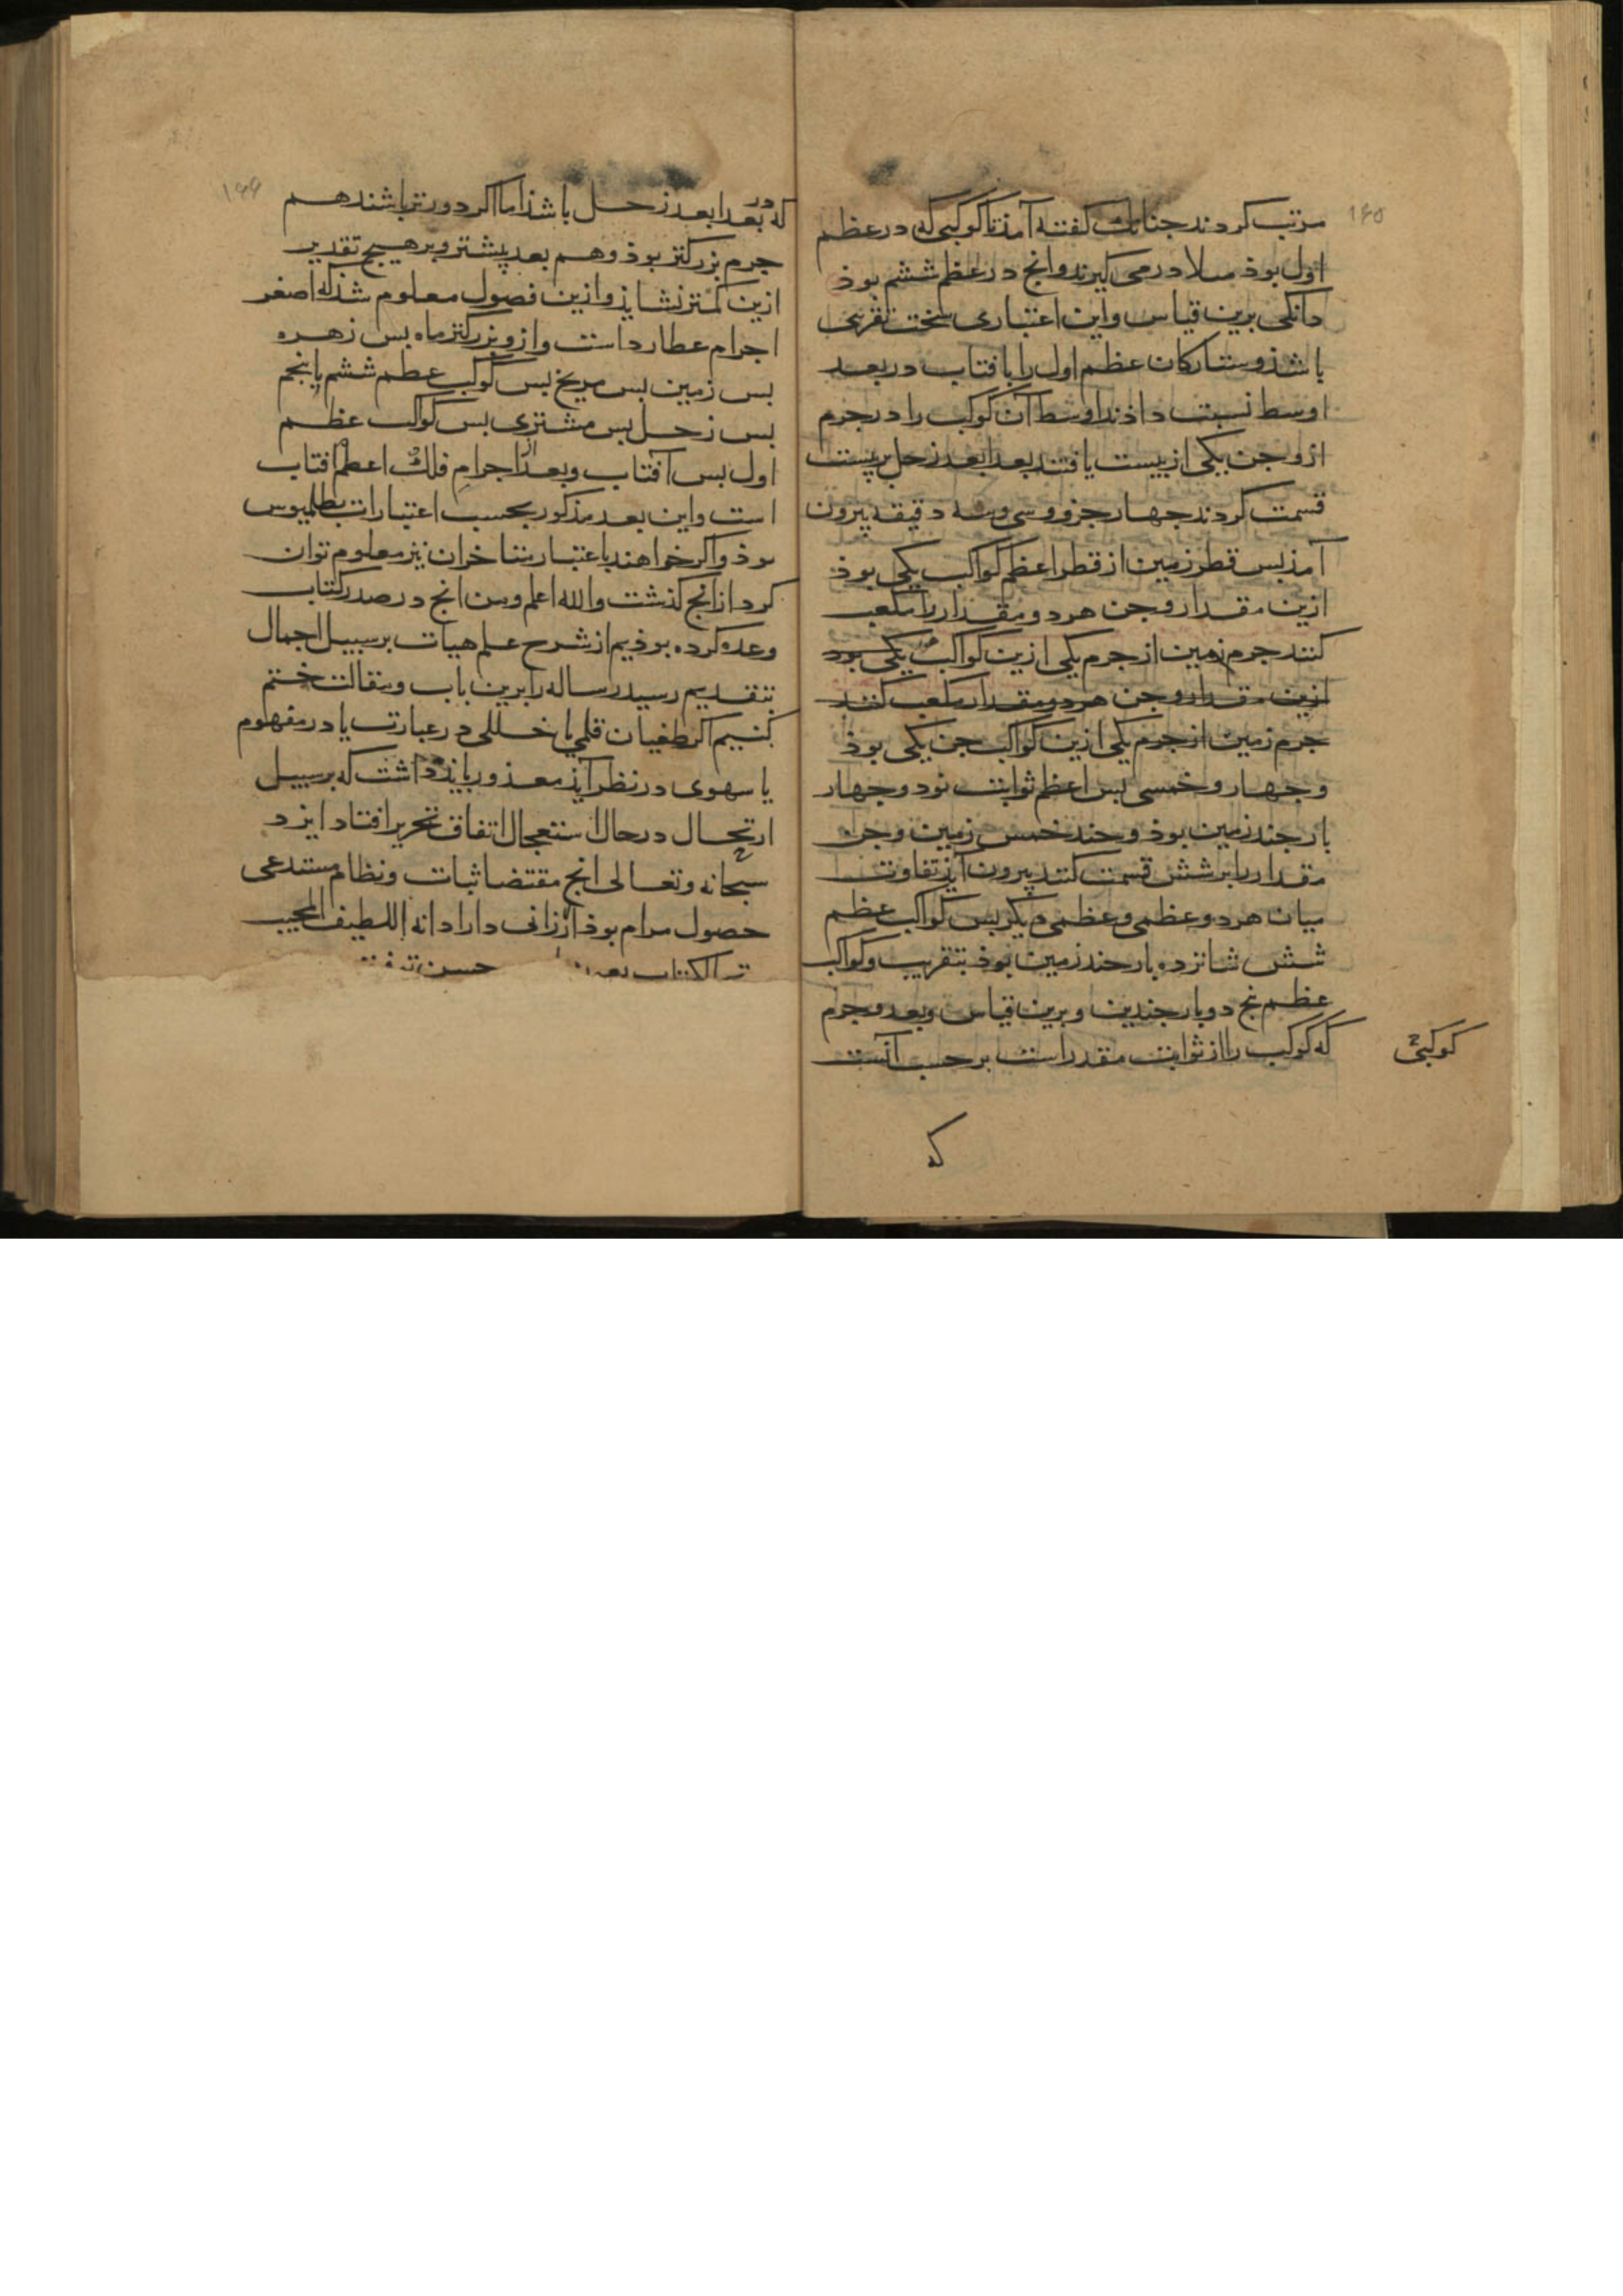 ۱۶۵
مرتب کردند جنانک کفته آمذ تا کوکبی که در عظم
اول بوذ مثلا درمی کیرند وانج در عظم ششم بوذ
دانکی برین قیاس واین اعتباری سخت تقریبی
باشذ وستارکان عظم اول را بافتاب در بعد
اوسط نسبت داذند اوسط آن کوکب را در جرم
ازو جن یکی از بیست یافتند بعد ابعد زحل بر بیست
قسمت کردند جهار جزو وسی وسه دقیقه بیرون
آمذ بس قطر زمین از قطر اعظم کواکب یکی بوذ
ازین مقدار وجن هر دو مقدار را مکعب
کنند جرم زمین از جرم یکی ازین کواکب یکی بود
ازین مقدار وجن هر دو مقدار مکعب کنند
جرم زمین از جرم یکی ازین کواکب جن یکی بوذ
وجهار وخمسی بس اعظم ثوابت نود وجهار
بار جند زمین بوذ وجند خمس زمین وجن
مقدار را بر شش قسمت کنند بیرون آیذ تفاوت
میان هر دو عظمی وعظمی دیکر بس کواکب عظم
شش شانزده بار جند زمین بوذ بتقریب وکواکب
عظم نج دو بار جندین وبرین قیاس وبعد وجرم
که کوکب را از ثوابت مقدر است بر حسب آنست
کوکبی
که
۱۶۶
که در بعد ابعد زحل باشذ اما اکر دورتر باشند هم
جرم بزرکتر بوذ وهم بعد بیشتر وبر هیچ تقدیر
ازین کمتر نشایذ وازین فصول معلوم شذ که اصغر
اجرام عطارد است وازو بزرکتر ماه بس زهره
بس زمین بس مریخ بس کوکب عظم ششم یا بنجم
بس زحل بس مشتری بس کواکب عظم
اول بس آفتاب وبعد از اجرام فلک اعظم افتاب
است واین بعد مذکور بحسب اعتبارات بطلمیوس
بوذ واکر خواهند باعتبار متاخران نیز معلوم توان
کرد از انج کذشت والله اعلم وجن انج در صدر کتاب
وعده کرده بوذیم از شرح علم هیات بر سبیل اجمال
بتقدیم رسید رساله را برین باب ومقالت ختم
کنیم اکر طغیان قلمی یا خللی در عبارت یا در مفهوم
یا سهوی در نظر آیذ معذور بایذ داشت که بر سبیل
ارتجال در حال استعجال اتفاق تحریر افتاد ایزد
سبحانه وتعالی انج مقتضا ثبات ونظام مستدعی
حصول مرام بوذ ارزانی دارا دانه اللطیف المجیب
الکتاب حسن